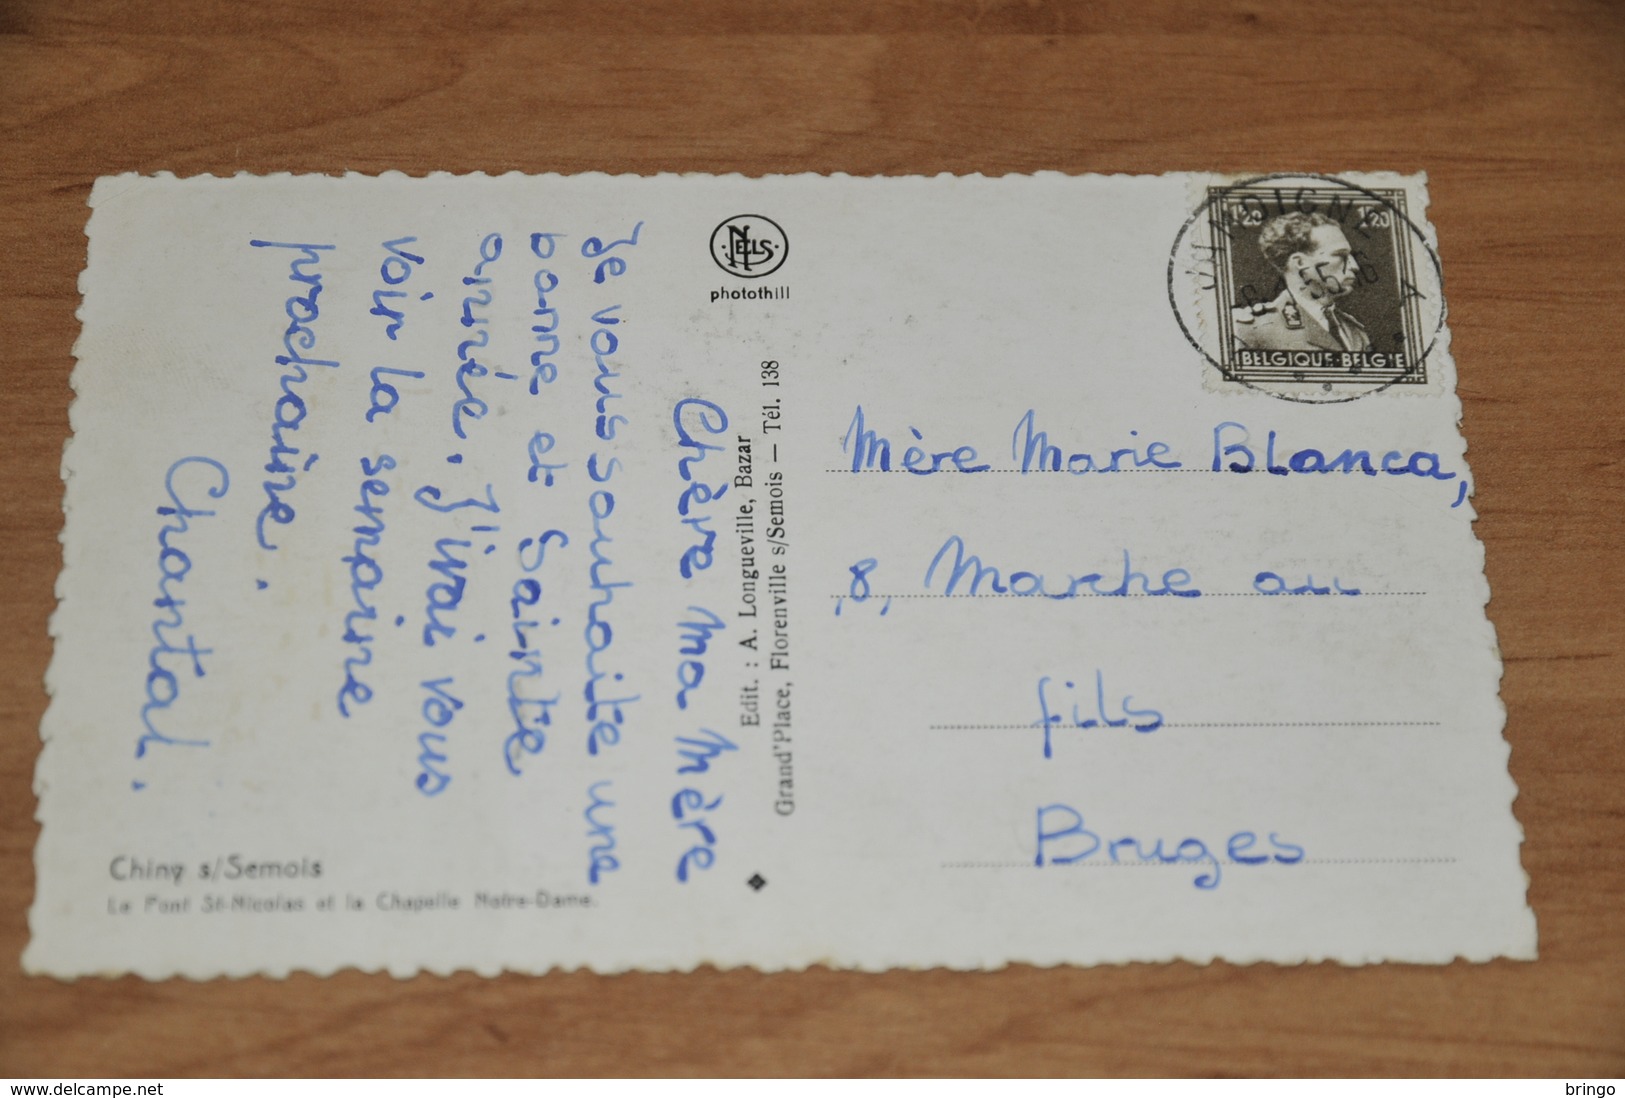 Chère ma Mère
Je vous souhaite une
bonne et Sainte
année. J'irai vous
voir la semaine
prochaine.
Chantal.
Chiny s/Semois
Le Pont St-Nicolas et la Chapelle Notre-Dame.
NELS
photothill
Edit. : A. Longueville, Bazar
Grand'Place, Florenville s/Semois — Tél. 138
1F20 1F20
BELGIQUE·BELGIE
A
Mère Marie Blanca,
8, Marche au
fils
Bruges
www.delcampe.net
bringo